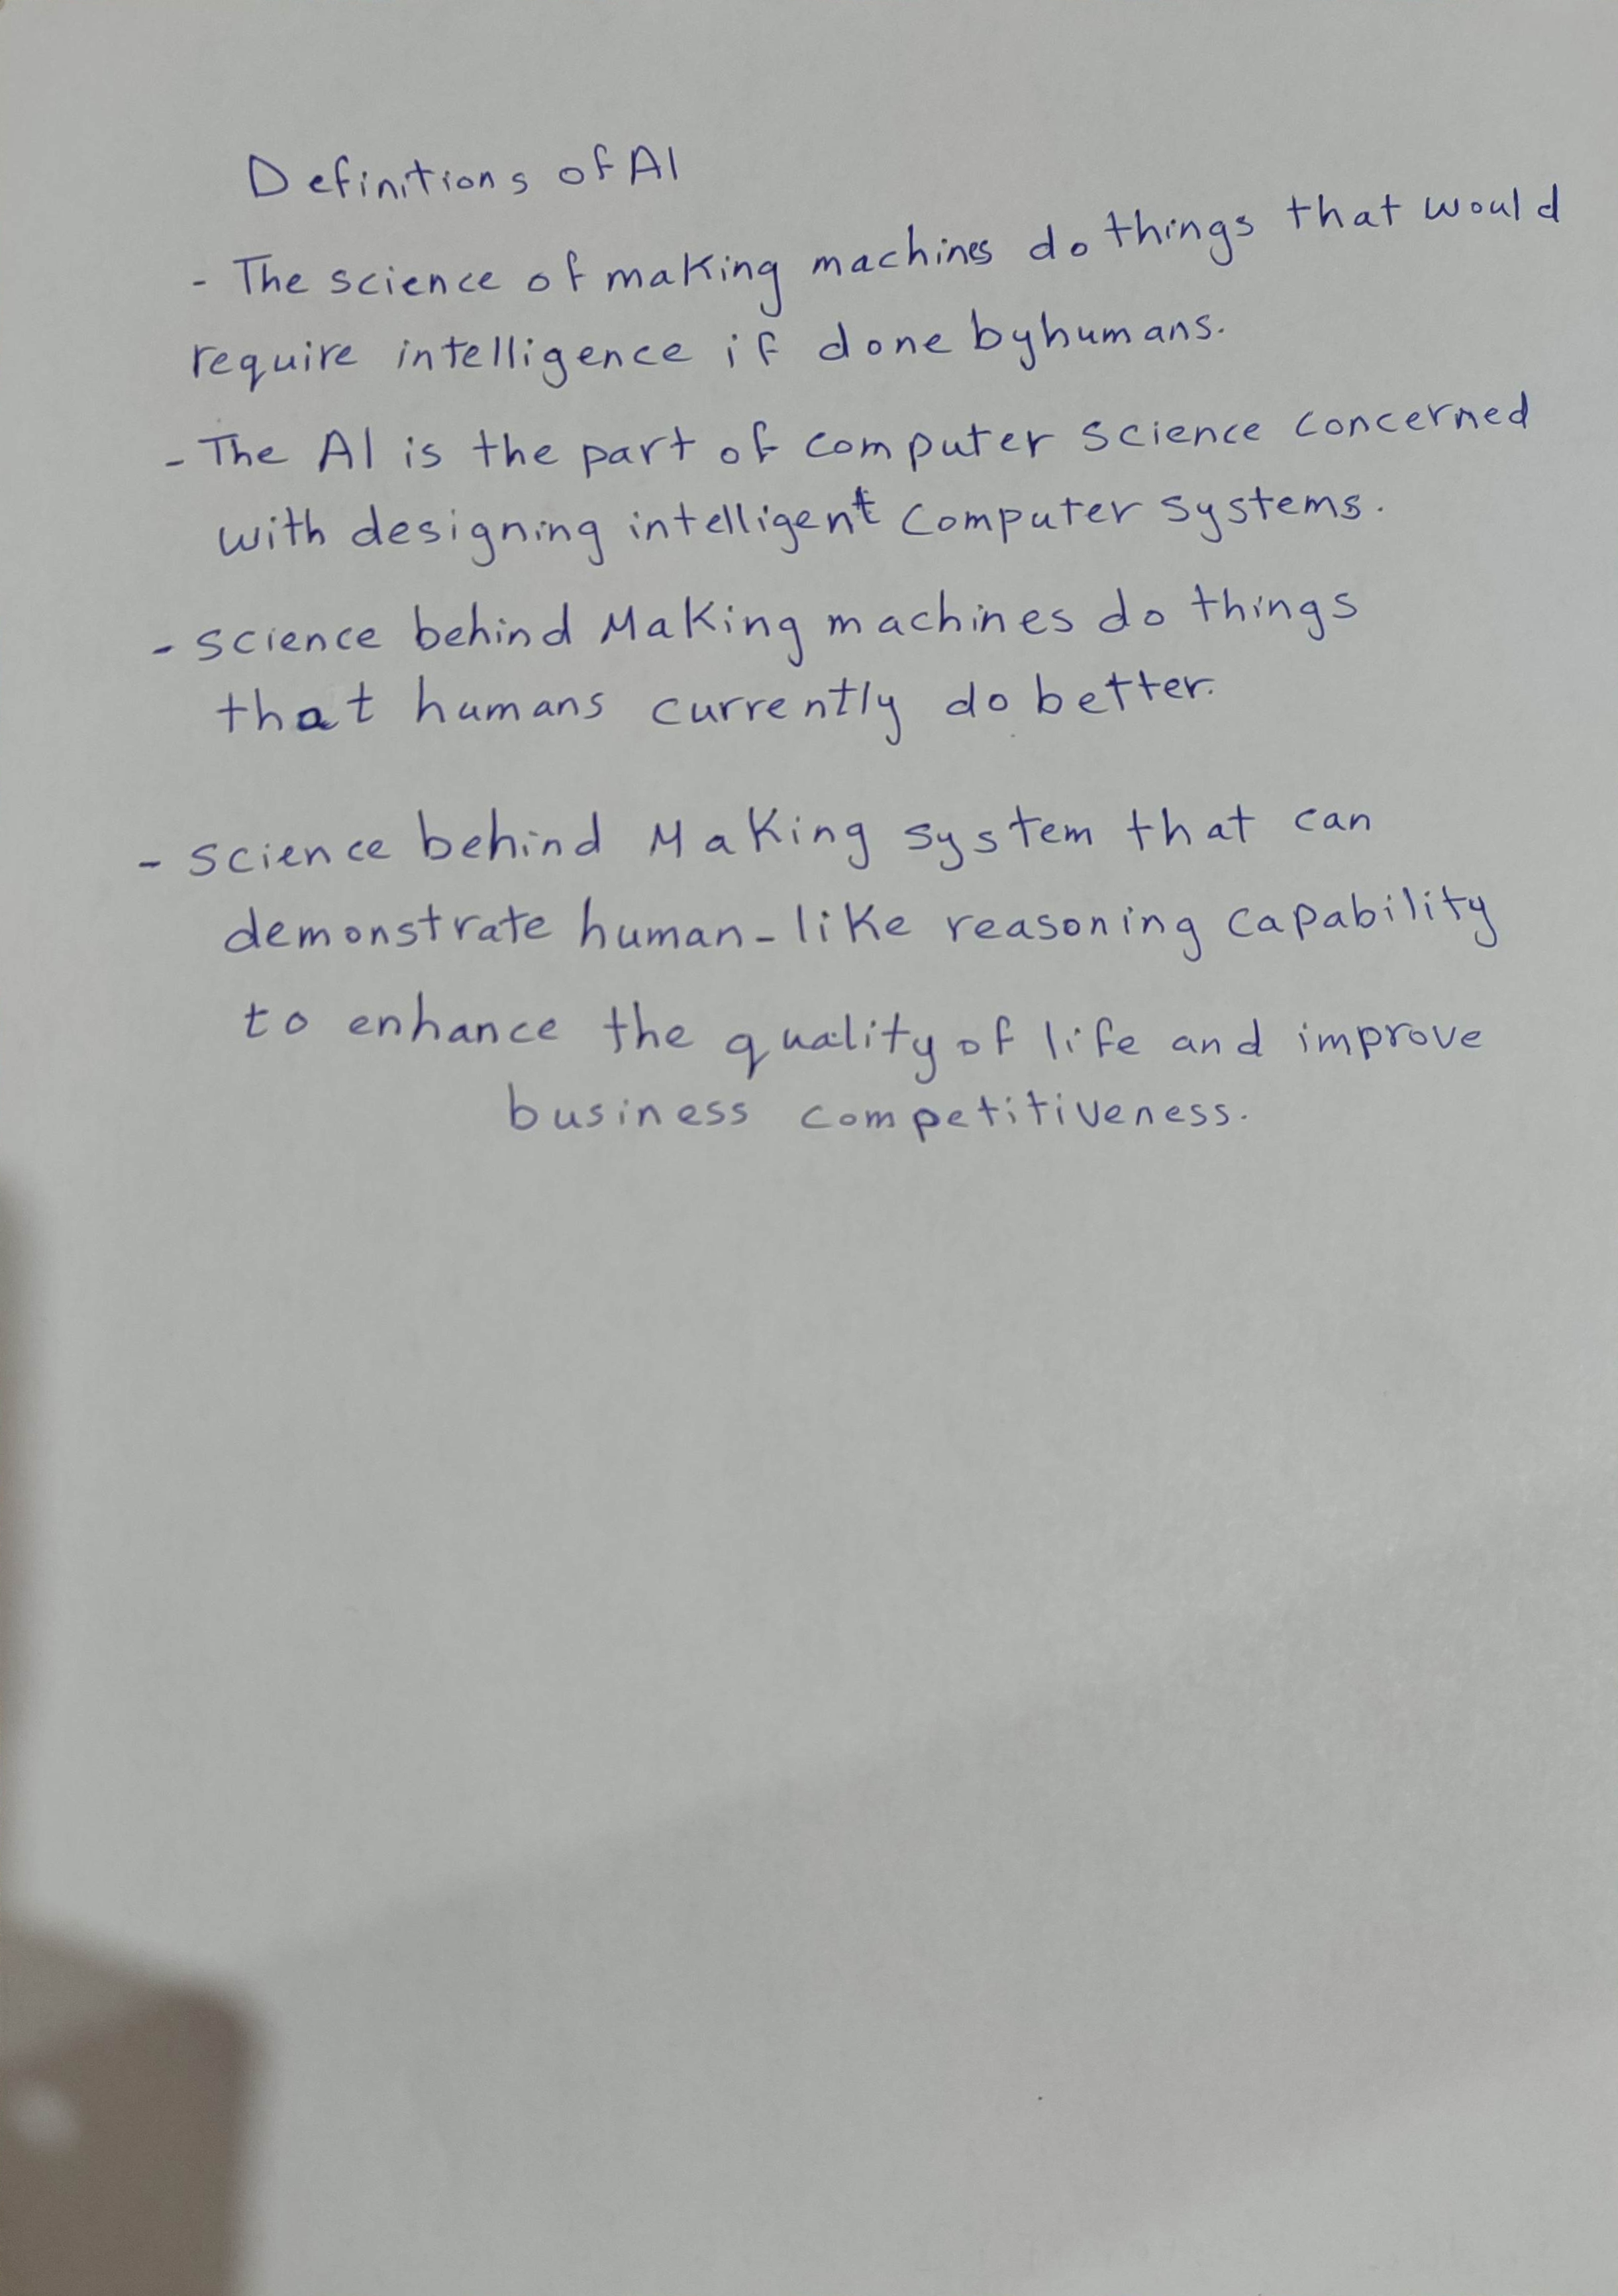 Definitions of AI
- The science of making machines do things that would
require intelligence if done by humans.
- The AI is the part of computer science concerned
with designing intelligent computer systems.
- science behind Making machines do things
that humans currently do better.
- science behind Making system that can
demonstrate human-like reasoning capability
to enhance the quality of life and improve
business competitiveness.